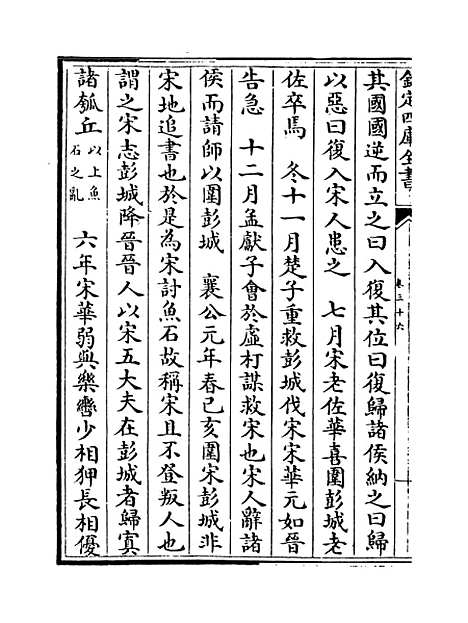 欽定四庫全書
卷三十六
其國國逆而立之曰入復其位曰復歸諸侯納之曰歸
以惡曰復入宋人患之　七月宋老佐華喜圍彭城老
佐卒焉　冬十一月楚子重救彭城伐宋宋華元如晉
告急　十二月孟獻子會於虛朾謀救宋也宋人辭諸
侯而請師以圍彭城　襄公元年春己亥圍宋彭城非
宋地追書也於是為宋討魚石故稱宋且不登叛人也
謂之宋志彭城降晉晉人以宋五大夫在彭城者歸寘
諸瓠丘以上魚石之亂　六年宋華弱與樂轡少相狎長相優